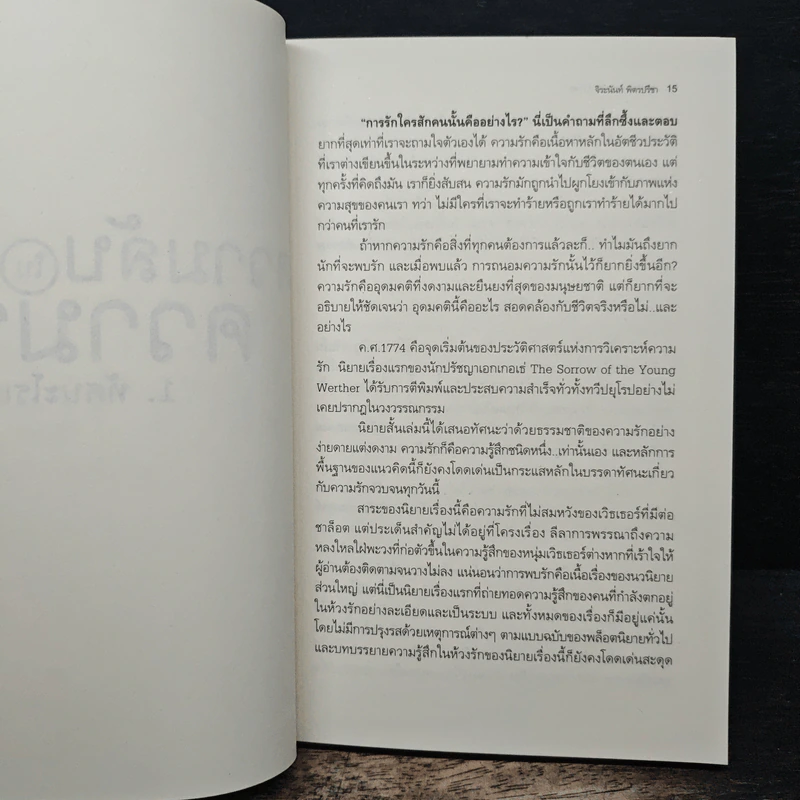 จิระนันท์ พิตรปรีชา 15
"การรักใครสักคนนั้นคืออย่างไร?" นี่เป็นคำถามที่ลึกซึ้งและตอบ
ยากที่สุดเท่าที่เราจะถามใจตัวเองได้ ความรักคือเนื้อหาหลักในอัตชีวประวัติ
ที่เราต่างเขียนขึ้นในระหว่างที่พยายามทำความเข้าใจกับชีวิตของตนเอง แต่
ทุกครั้งที่คิดถึงมัน เราก็ยิ่งสับสน ความรักมักถูกนำไปผูกโยงเข้ากับภาพแห่ง
ความสุขของคนเรา ทว่า ไม่มีใครที่เราจะทำร้ายหรือถูกเราทำร้ายได้มากไป
กว่าคนที่เรารัก
ถ้าหากความรักคือสิ่งที่ทุกคนต้องการแล้วละก็.. ทำไมมันถึงยาก
นักที่จะพบรัก และเมื่อพบแล้ว การถนอมความรักนั้นไว้ก็ยากยิ่งขึ้นอีก?
ความรักคืออุดมคติที่งดงามและยืนยงที่สุดของมนุษยชาติ แต่ก็ยากที่จะ
อธิบายให้ชัดเจนว่า อุดมคตินี้คืออะไร สอดคล้องกับชีวิตจริงหรือไม่..และ
อย่างไร
ค.ศ.1774 คือจุดเริ่มต้นของประวัติศาสตร์แห่งการวิเคราะห์ความ
รัก นิยายเรื่องแรกของนักปรัชญาเอกเกอเธ่ The Sorrow of the Young
Werther ได้รับการตีพิมพ์และประสบความสำเร็จทั่วทั้งทวีปยุโรปอย่างไม่
เคยปรากฏในวงวรรณกรรม
นิยายสั้นเล่มนี้ได้เสนอทัศนะว่าด้วยธรรมชาติของความรักอย่าง
ง่ายดายแต่งดงาม ความรักก็คือความรู้สึกชนิดหนึ่ง..เท่านั้นเอง และหลักการ
พื้นฐานของแนวคิดนี้ก็ยังคงโดดเด่นเป็นกระแสหลักในบรรดาทัศนะเกี่ยว
กับความรักจวบจนทุกวันนี้
สาระของนิยายเรื่องนี้คือความรักที่ไม่สมหวังของเวิธเธอร์ที่มีต่อ
ชาล็อต แต่ประเด็นสำคัญไม่ได้อยู่ที่โครงเรื่อง ลีลาการพรรณาถึงความ
หลงใหลใฝ่พะวงที่ก่อตัวขึ้นในความรู้สึกของหนุ่มเวิธเธอร์ต่างหากที่เร้าใจให้
ผู้อ่านต้องติดตามจนวางไม่ลง แน่นอนว่าการพบรักคือเนื้อเรื่องของนวนิยาย
ส่วนใหญ่ แต่นี่เป็นนิยายเรื่องแรกที่ถ่ายทอดความรู้สึกของคนที่กำลังตกอยู่
ในห้วงรักอย่างละเอียดและเป็นระบบ และทั้งหมดของเรื่องก็มีอยู่แค่นั้น
โดยไม่มีการปรุงรสด้วยเหตุการณ์ต่างๆ ตามแบบฉบับของพล็อตนิยายทั่วไป
และบทบรรยายความรู้สึกในห้วงรักของนิยายเรื่องนี้ก็ยังคงโดดเด่นสะดุด